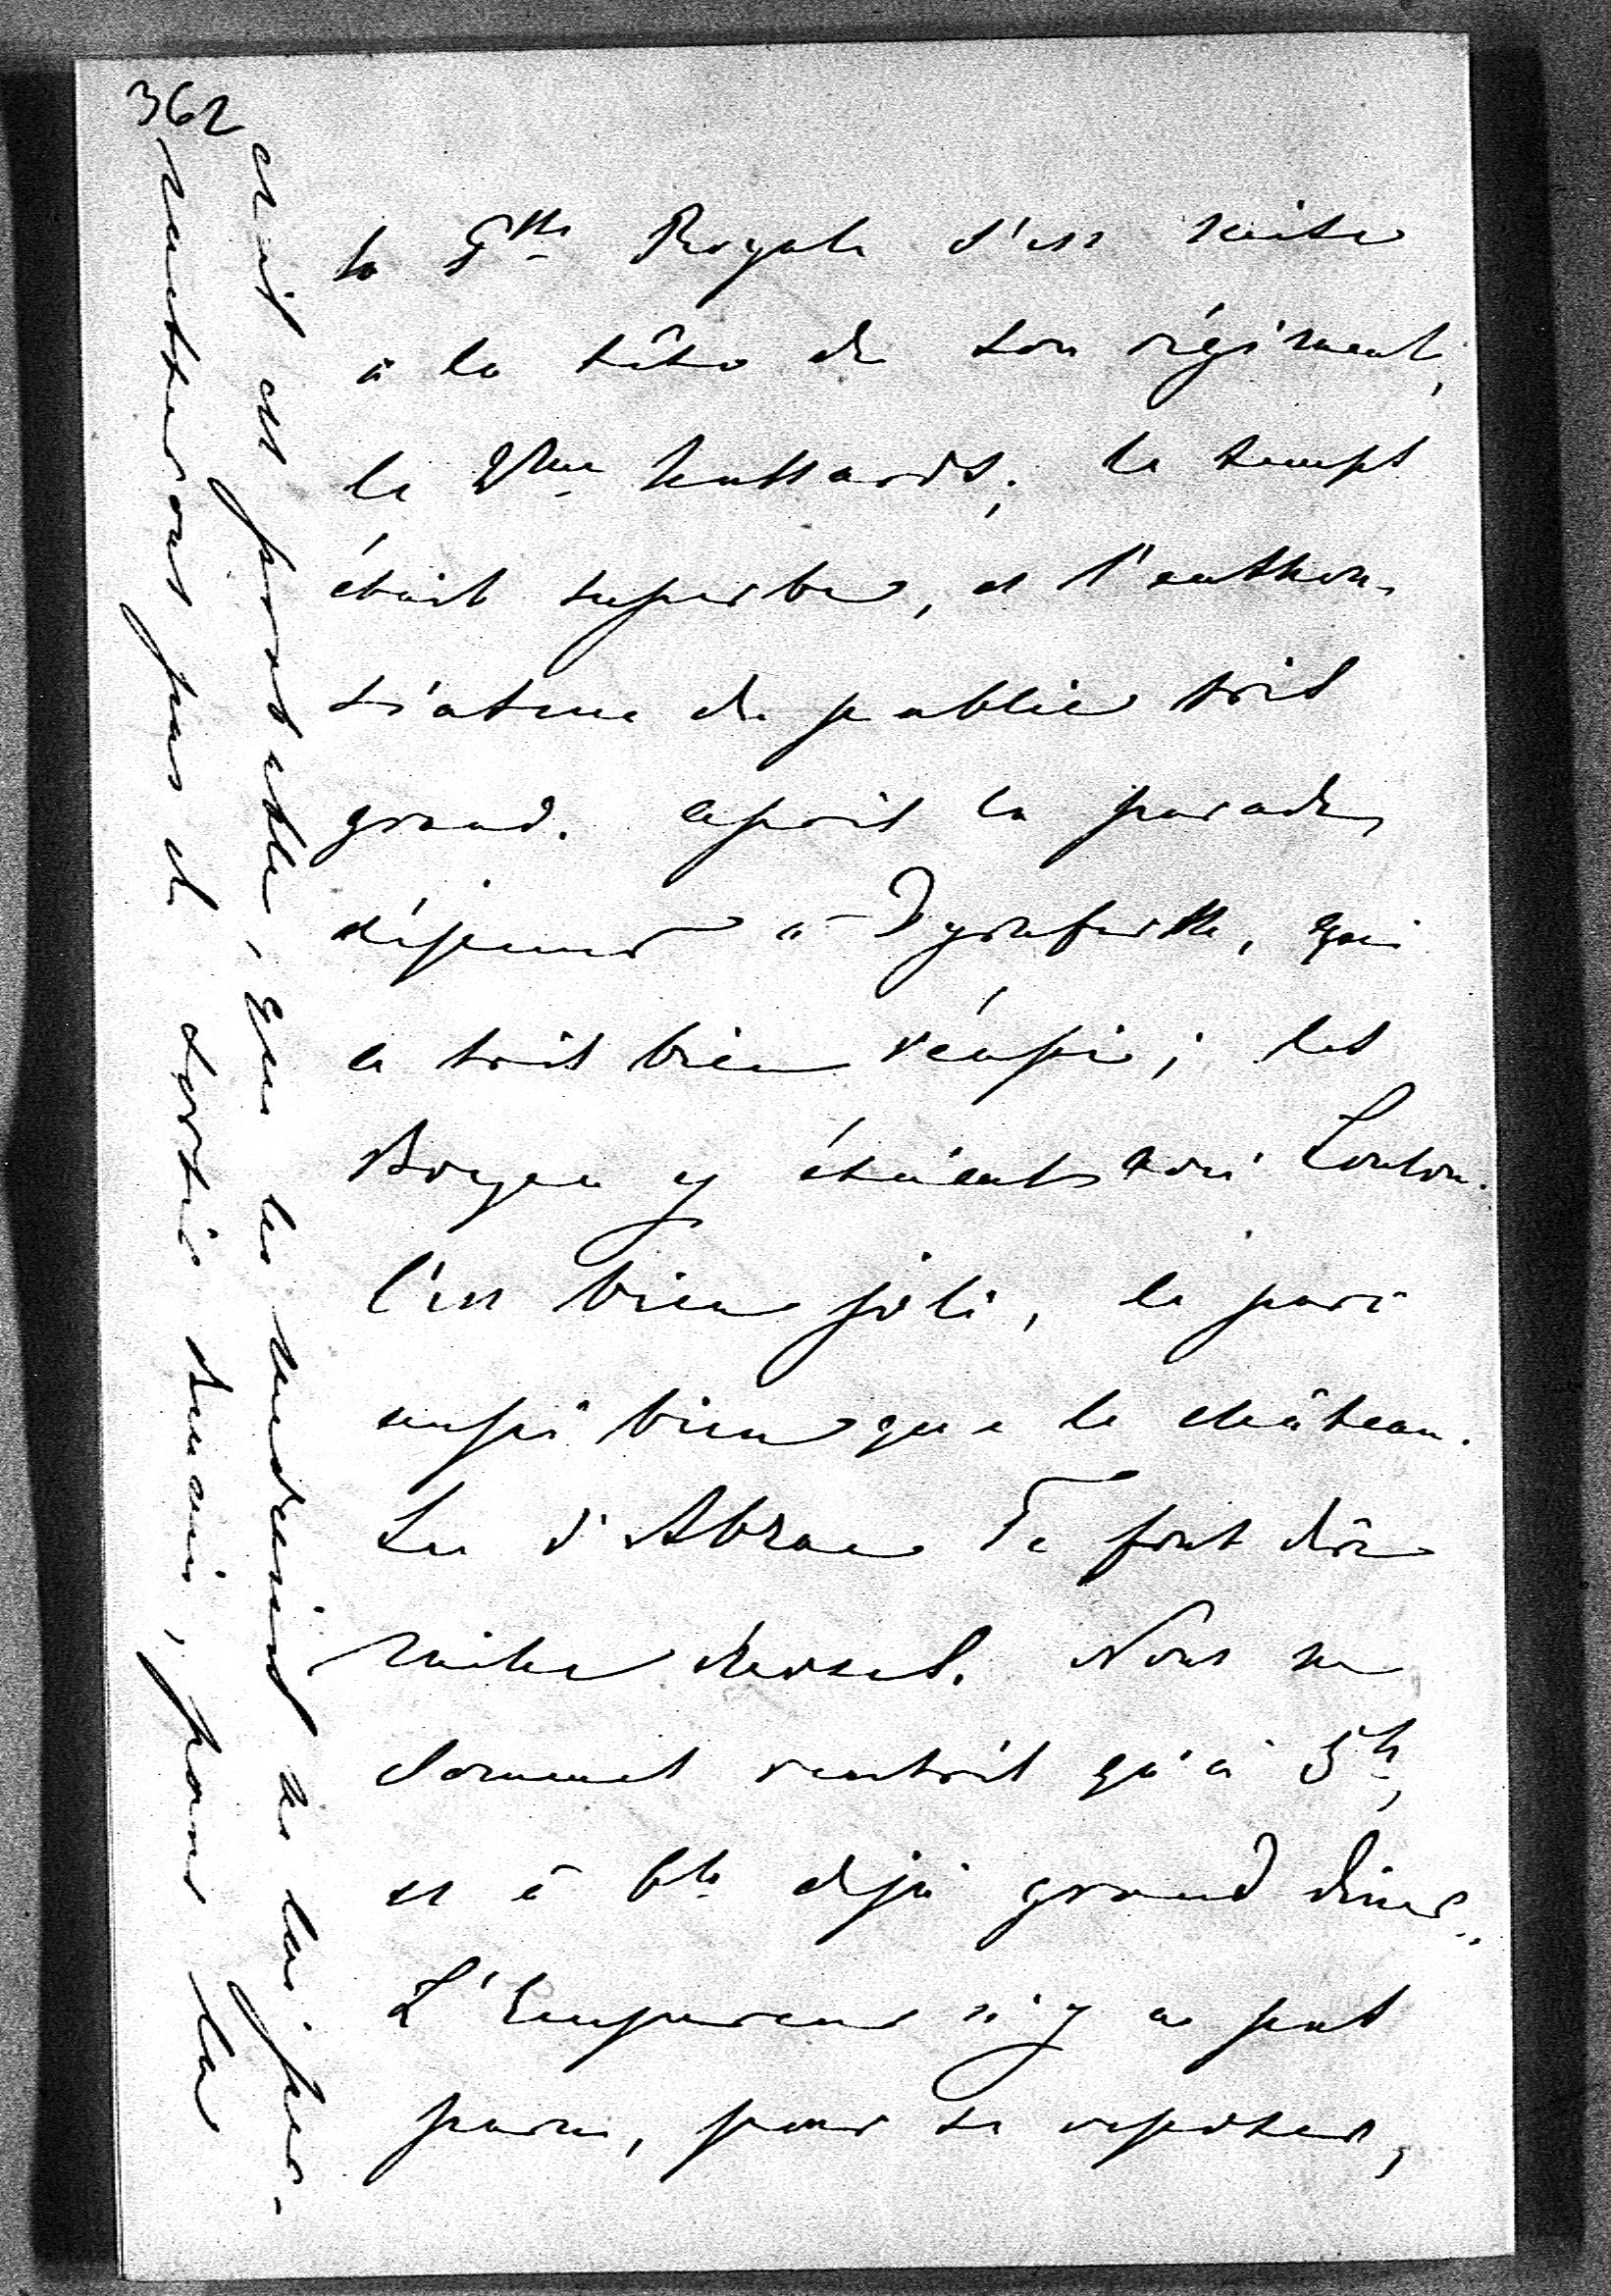 362
la Psse Royale s'est mise
à la tête de son régiment,
le 2me hussards; le temps
était superbe, et l'enthou-
siasme du public très
grand. après la parade
déjeuner à Dyrnfurth, qui
a très bien réussi; les
Boyen y étaient avec Loulou.
C'est bien joli, le parc
aussi bien que le château.
Les d'Abzac Te font dire
mille choses. Nous ne
sommes rentrés qu'à 5h,
et à 6h déjà grand dîner.
L'Empereur n'y a pas
paru, pour se reposer,
et il est probable, que les médecins ne lui per-
mettront pas de sortir demain, pour la